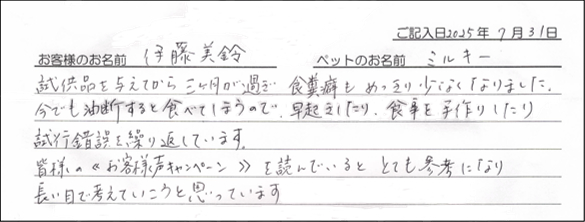 ご記入日2025年7月31日
お客様のお名前 伊藤美鈴 ペットのお名前 ミルキー
試供品を与えてから三ヶ月が過ぎ 食糞癖も めっきり少なくなりました。
今でも油断すると食べてしまうので、早起きしたり、食事を手作りしたり
試行錯誤を繰り返しています。
皆様の《お客様声キャンペーン》を読んでいると とても参考になり
長い目で考えていこうと思っています